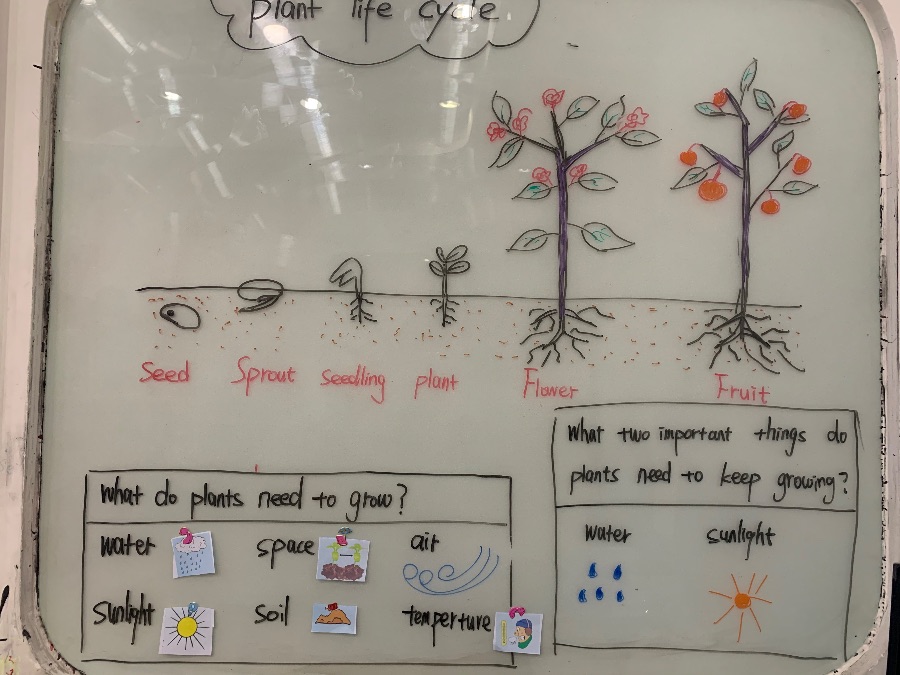 plant life cycle
Seed Sprout Seedling plant Flower Fruit
What two important things do
plants need to keep growing?
water sunlight
What do plants need to grow?
water space air
Sunlight soil temperture